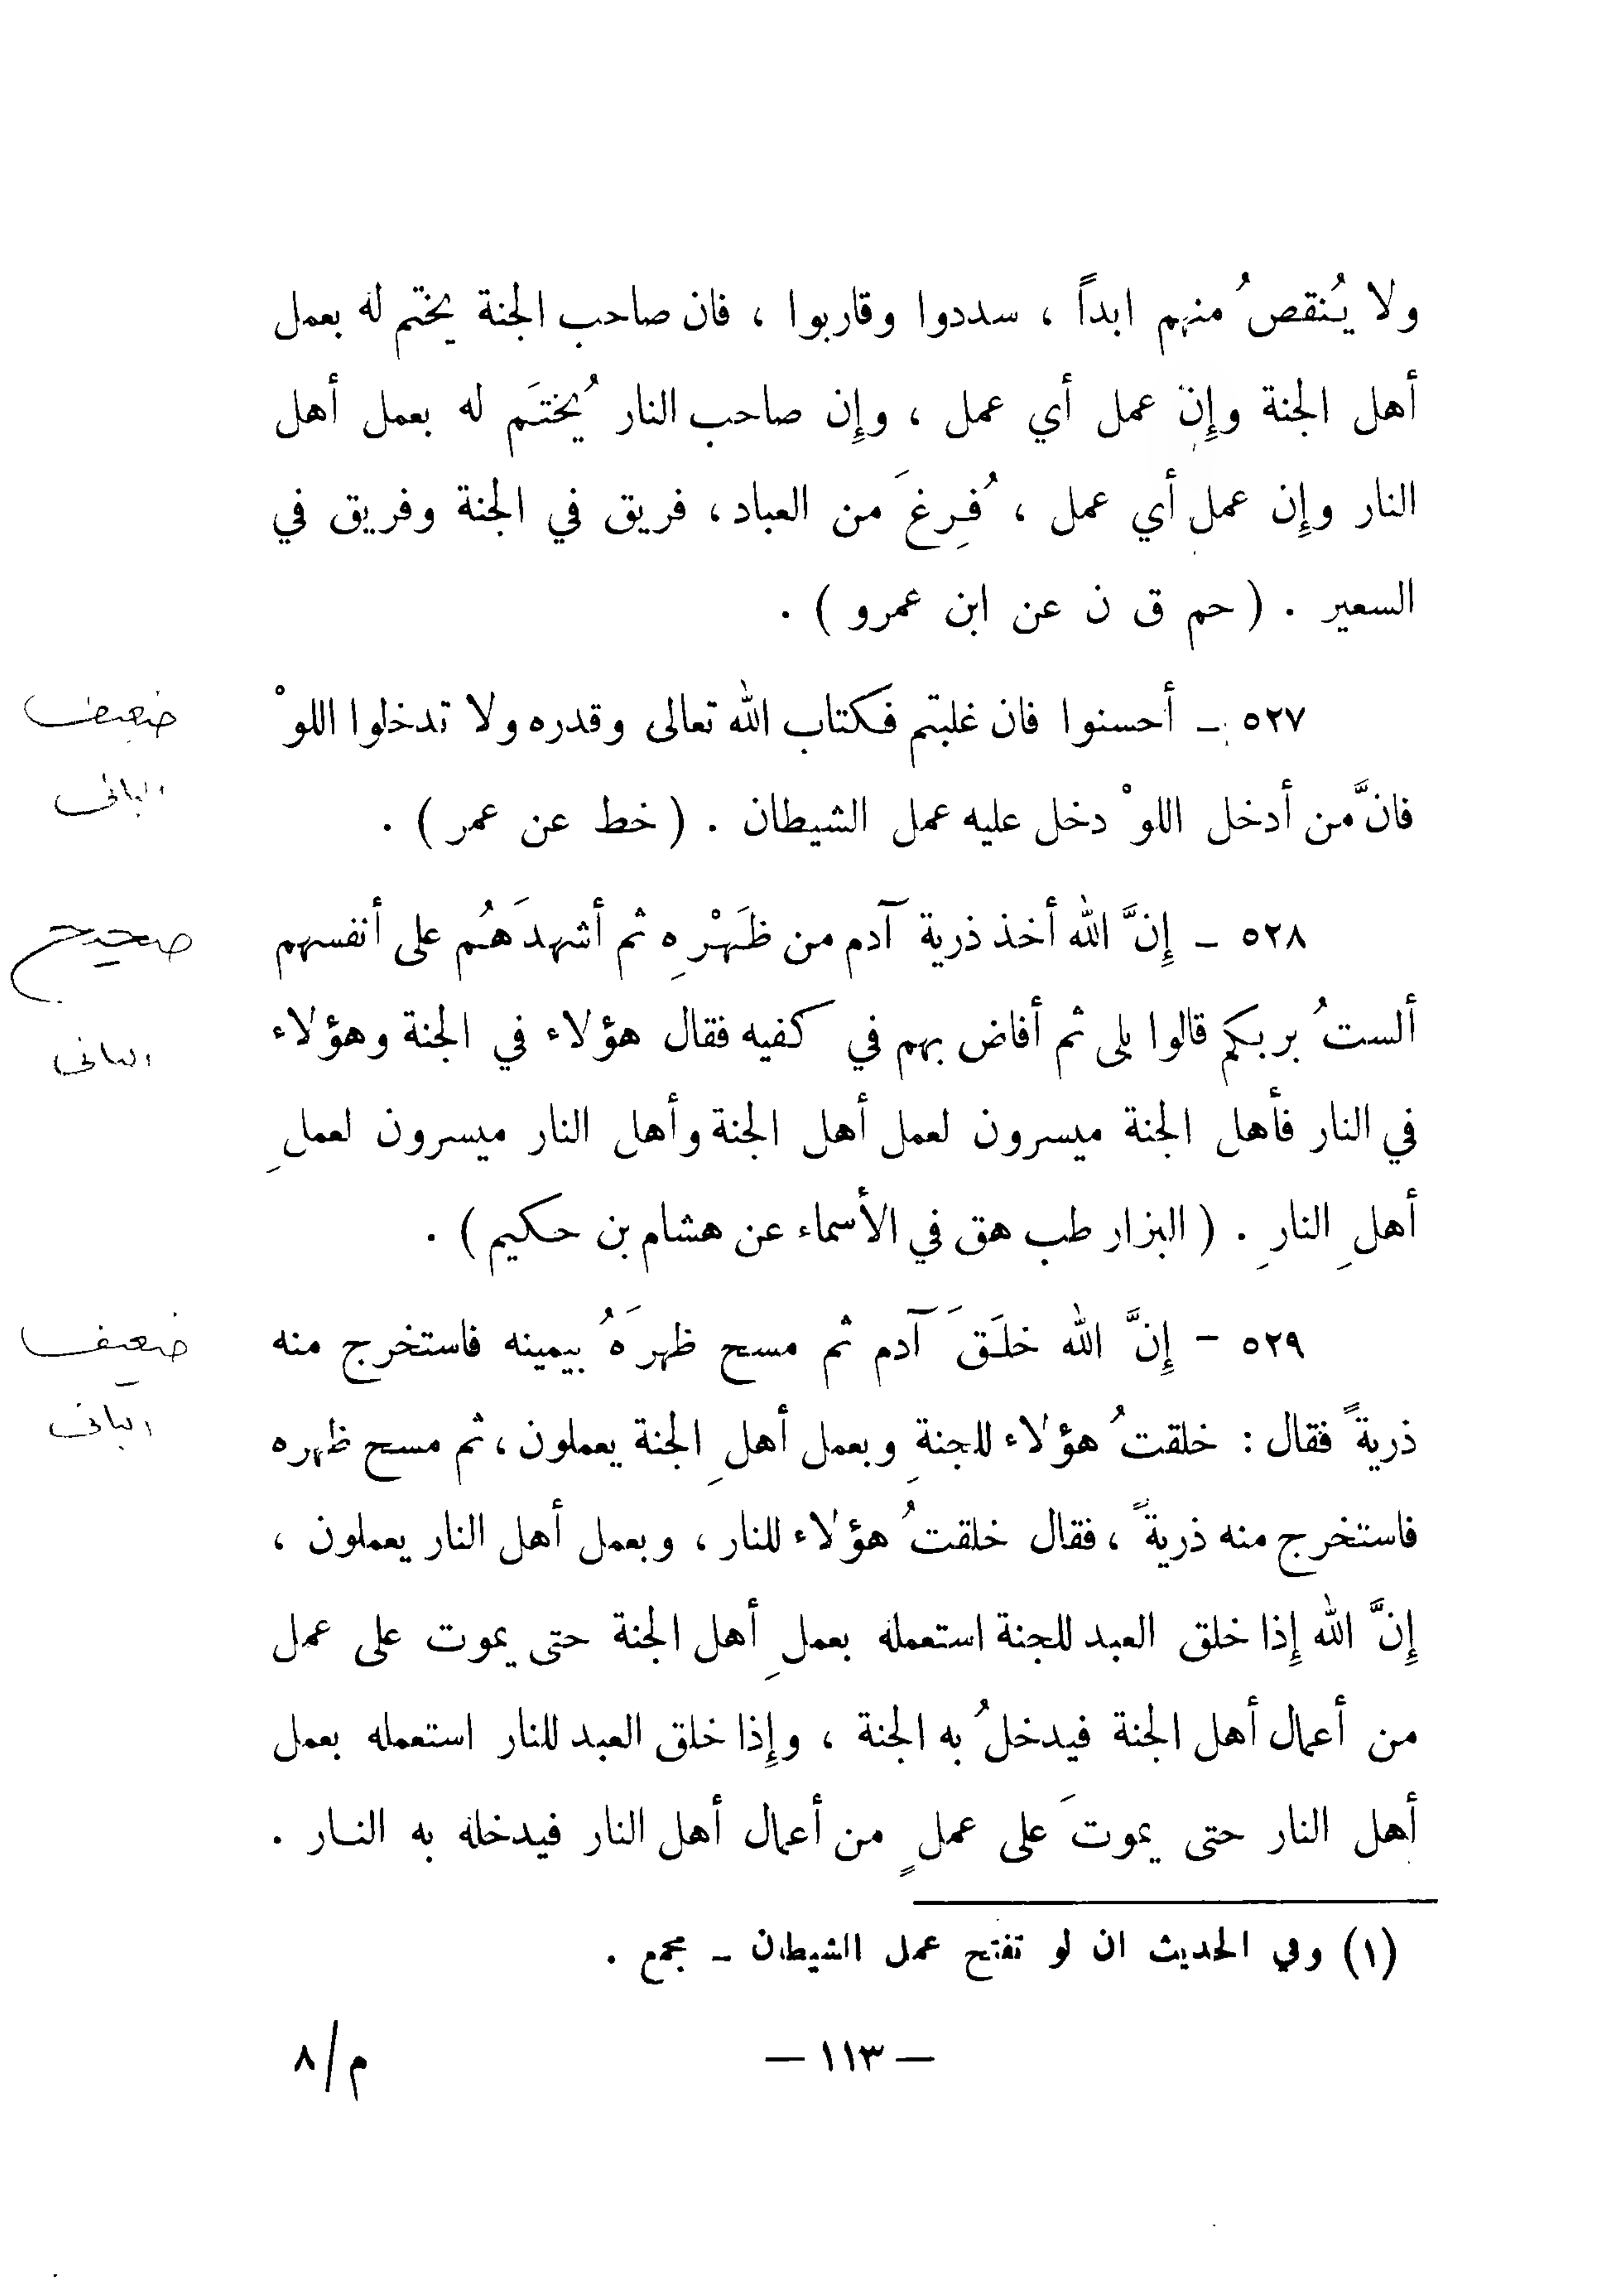 ولا يُنقصُ منهم ابداً ، سددوا وقاربوا ، فان صاحب الجنة يختم له بعمل
أهل الجنة وإن عمل أي عمل ، وإن صاحب النار يُختَم له بعمل أهل
النار وإن عمل أي عمل ، فُرِغَ من العباد، فريق في الجنة وفريق في
السعير . ( حم ق ن عن ابن عمرو ) .
٥٢٧ - أحسنوا فان غلبتم فكتاب الله تعالى وقدره ولا تدخلوا اللوْ
ضعيف
الباني
فانَّ من أدخل اللوْ دخل عليه عمل الشيطان . ( خط عن عمر ) .
٥٢٨ - إِنَّ الله أخذ ذرية آدم من ظَهْرِه ثم أشهدَهُم على أنفسهم
صحيح
ألستُ بربكم قالوا بلى ثم أفاض بهم في كفيه فقال هؤلاء في الجنة وهؤلاء
البانى
في النار فأهل الجنة ميسرون لعمل أهل الجنة وأهل النار ميسرون لعملِ
أهلِ النارِ . ( البزار طب هق في الأسماء عن هشام بن حكيم ) .
٥٢٩ - إِنَّ الله خلَقَ آدم ثم مسح ظهرَهُ بيمينه فاستخرج منه
ضعيف
البانى
ذريةً فقال : خلقتُ هؤلاء للجنةِ وبعمل أهلِ الجنة يعملون، ثم مسح ظهره
فاستخرج منه ذريةً ، فقال خلقتُ هؤلاء للنار ، وبعمل أهل النار يعملون ،
إِنَّ الله إِذا خلق العبد للجنة استعمله بعملِ أهل الجنة حتى يموت على عمل
من أعمال أهل الجنة فيدخلُ به الجنة ، وإِذا خلق العبد للنار استعمله بعمل
أهل النار حتى يموتَ على عملٍ من أعمال أهل النار فيدخله به النـار .
(١) وفي الحديث ان لو تفتح عمل الشيطان - مجمع .
— ١١٣ —
م/٨